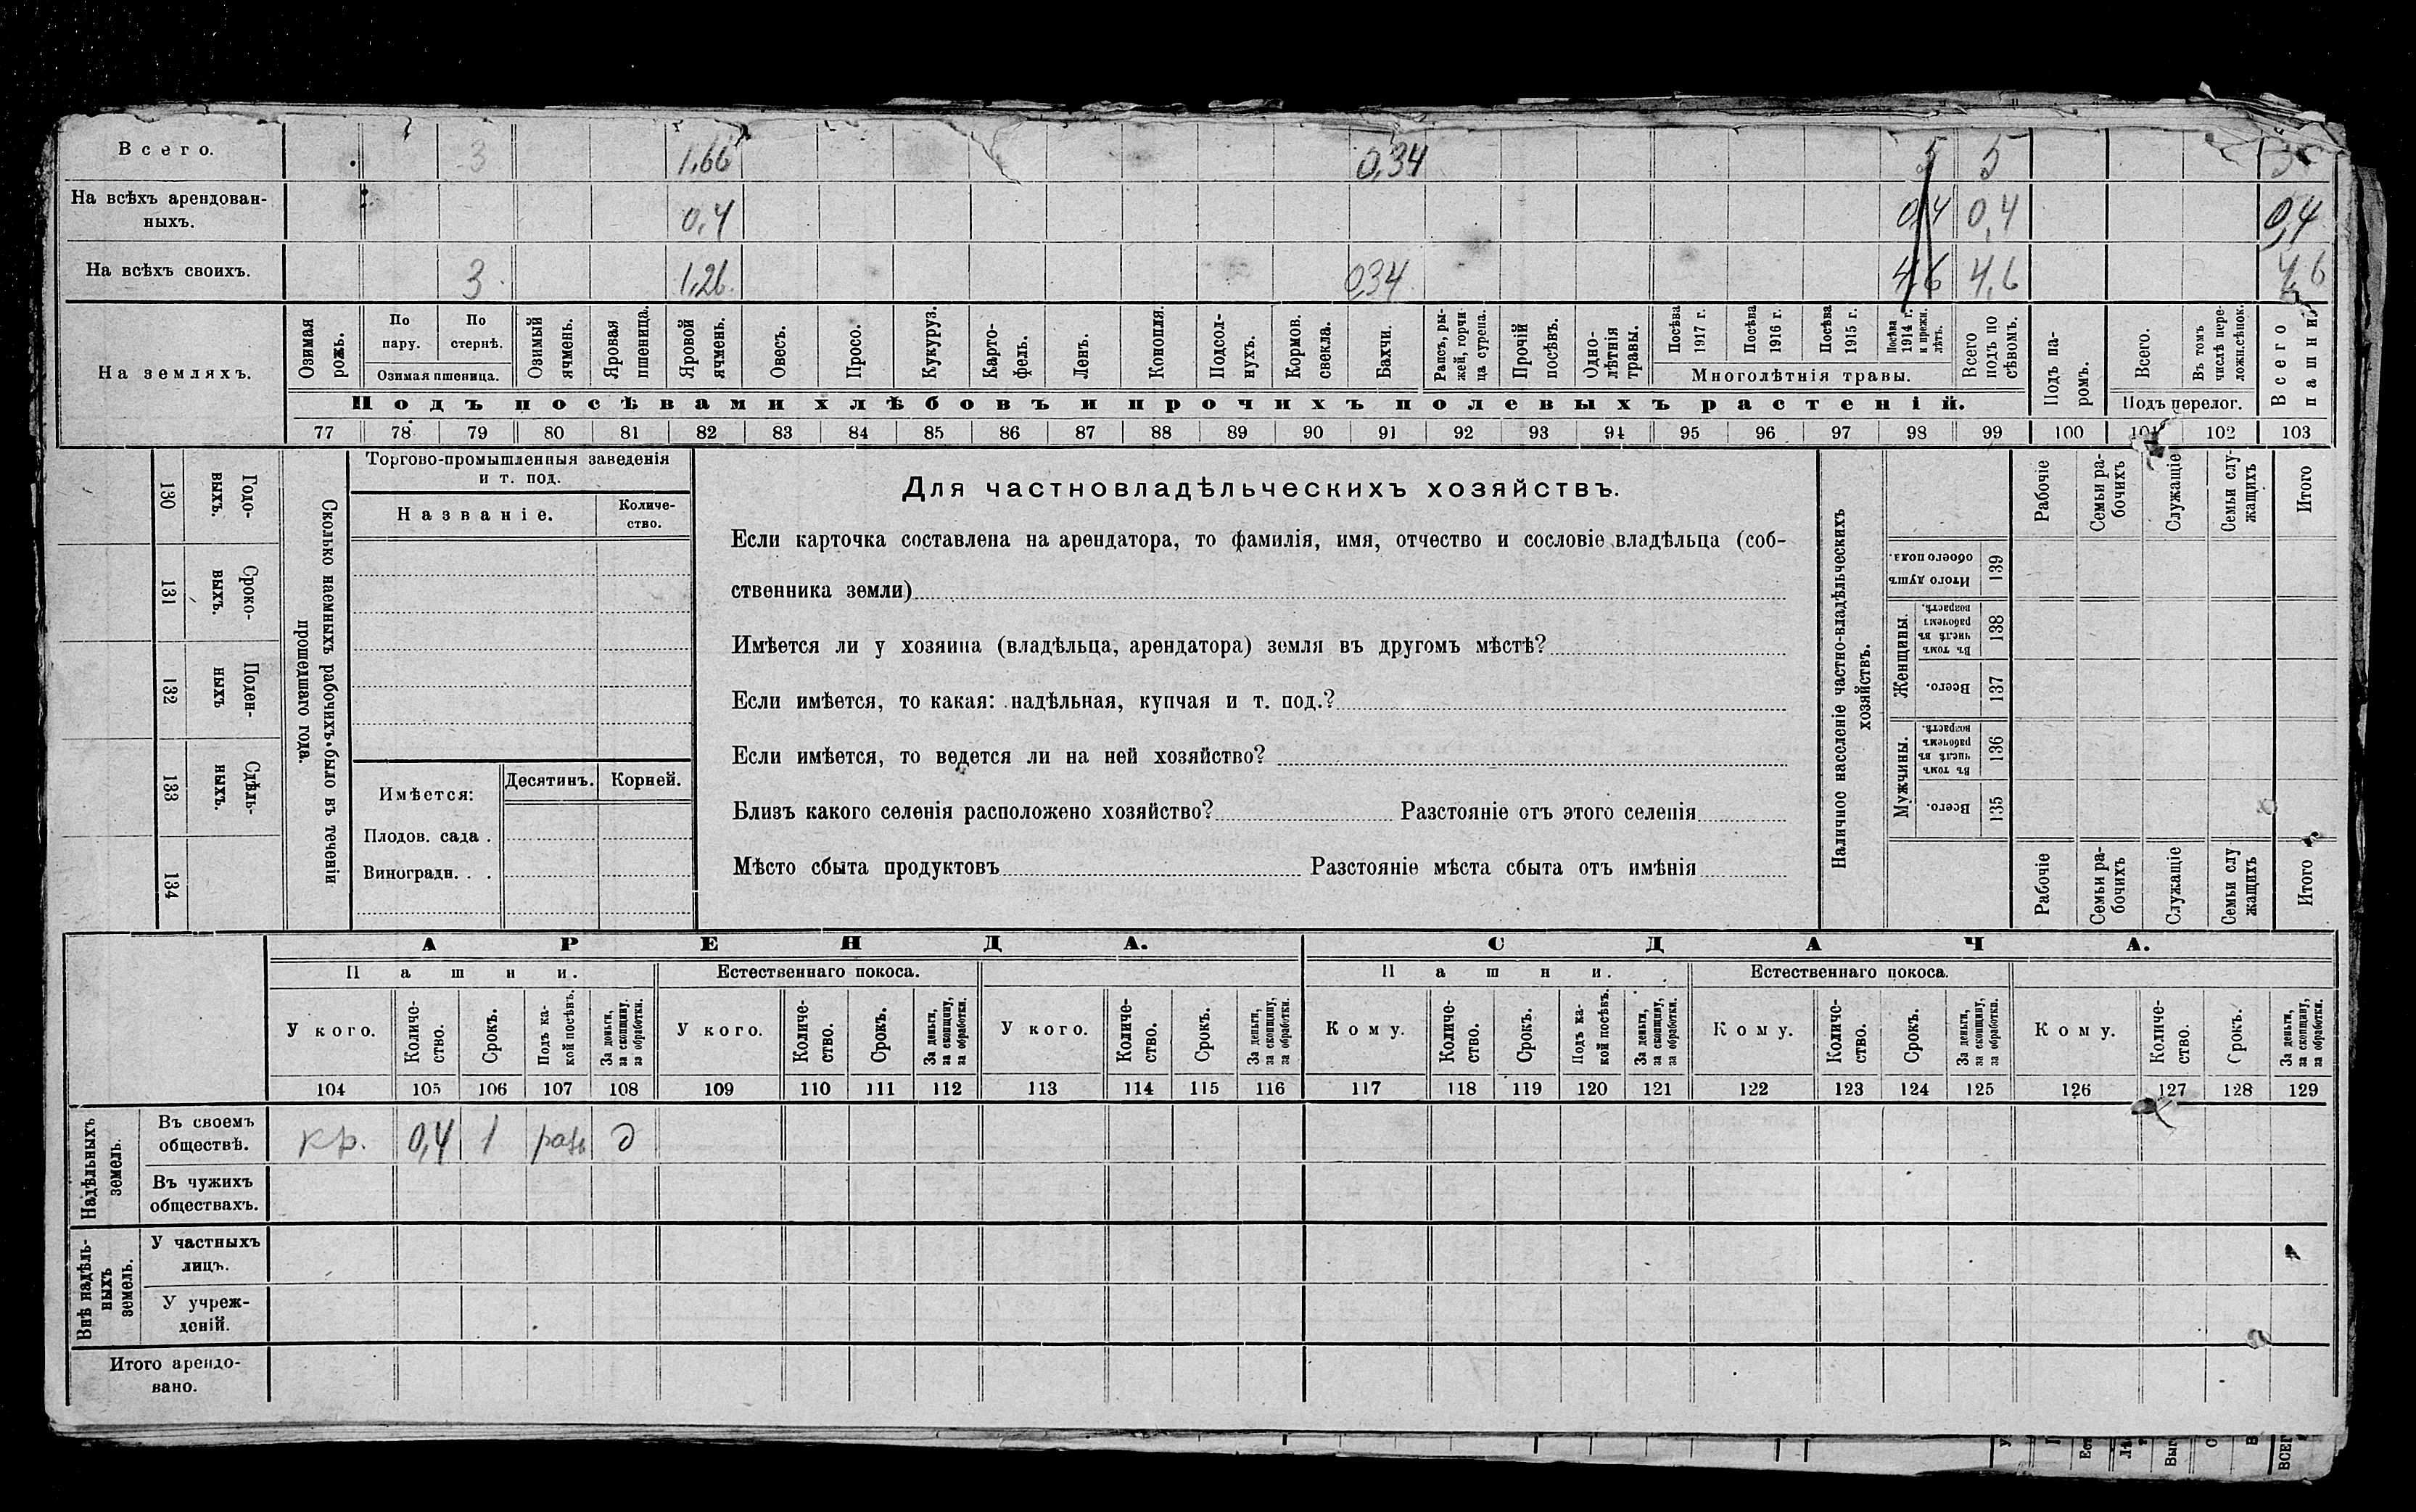 Всего. 3 1,66 0,34 5 5 5
На всѣхъ арендован-
ныхъ. 0,4 0,4 0,4 0,4
На всѣхъ своихъ. 3 1,26 0,34 4,6 4,6 4,6
На земляхъ.
Озимая рожь.
По пару.
По стернѣ.
Озимая пшеница.
Озимый ячмень.
Яровая пшеница.
Яровой ячмень.
Овесъ.
Просо.
Кукуруз.
Карто-
фель.
Ленъ.
Конопля.
Подсол-
нухъ.
Кормов. свекла.
Бахчи.
Рапсъ, ры-
жей, горчи-
ца сурепа.
Прочій посѣвъ.
Одно-
лѣтнія травы.
Посѣва 1917 г.
Посѣва 1916 г.
Посѣва 1915 г.
Посѣва 1914 г. и прежн. лѣтъ.
Многолѣтнія травы.
Всего подъ по сѣвомъ.
Подъ посѣвами хлѣбовъ и прочихъ полевыхъ растеній.
Подъ па-
ромъ.
Всего.
Въ томъ числѣ пере-
ложн.сѣнок.
Подъ перелог.
Всего пашни.
77 78 79 80 81 82 83 84 85 86 87 88 89 90 91 92 93 94 95 96 97 98 99 100 101 102 103
130 Годо-
выхъ.
131 Сроко-
выхъ.
132 Поден-
ныхъ
133 Сдѣль-
ныхъ.
134
Сколько наемныхъ рабочихъ было въ теченіи
прошедшаго года.
Торгово-промышленныя заведенія
и т. под.
Названіе.
Количе-
ство.
Имѣется: Десятинъ. Корней.
Плодов. сада .
Виноградн. . .
Для частновладѣльческихъ хозяйствъ.
Если карточка составлена на арендатора, то фамилія, имя, отчество и сословіе владѣльца (соб-
ственника земли)
Имѣется ли у хозяина (владѣльца, арендатора) земля въ другомъ мѣстѣ?
Если имѣется, то какая: надѣльная, купчая и т. под.?
Если имѣется, то ведется ли на ней хозяйство?
Близъ какого селенія расположено хозяйство? Разстояніе отъ этого селенія
Мѣсто сбыта продуктовъ Разстояніе мѣста сбыта отъ имѣнія
Наличное населеніе частно-владѣльческихъ
хозяйствъ.
Рабочіе
Семьи ра-
бочихъ
Служащіе
Семьи слу-
жащихъ
Итого
Итого душъ обоего пола. 139
Женщины.
Въ томъ числѣ въ рабочемъ возрастѣ. 138
Всего. 137
Мужчины.
Въ томъ числѣ въ рабочемъ возрастѣ. 136
Всего. 135
Рабочіе
Семьи ра-
бочихъ
Служащіе
Семьи слу
жащихъ
Итого
АРЕНДА. СДАЧА.
Пашни. Естественнаго покоса. Пашни. Естественнаго покоса.
У кого.
Количе-
ство.
Срокъ.
Подъ ка-
кой посѣвъ.
За деньги, за скопщину, за обработки.
У кого.
Количе-
ство.
Срокъ.
За деньги, за скопщину, за обработки.
У кого.
Количе-
ство.
Срокъ.
За деньги, за скопщину, за обработки.
Кому.
Количе-
ство.
Срокъ.
Подъ ка-
кой посѣвъ.
За деньги, за скопщину, за обработки.
Кому.
Количе-
ство.
Срокъ.
За деньги, за скопщину, за обработки.
Кому.
Количе-
ство.
Срокъ.
За деньги, за скопщину, за обработки.
104 105 106 107 108 109 110 111 112 113 114 115 116 117 118 119 120 121 122 123 124 125 126 127 128 129
Надѣльныхъ
земель.
Въ своемъ
обществѣ. кр. 0,4 1 разн д
Въ чужихъ
обществахъ.
Внѣ надѣль-
ныхъ
земель.
У частныхъ
лицъ.
У учреж-
деній.
Итого арендо-
вано.